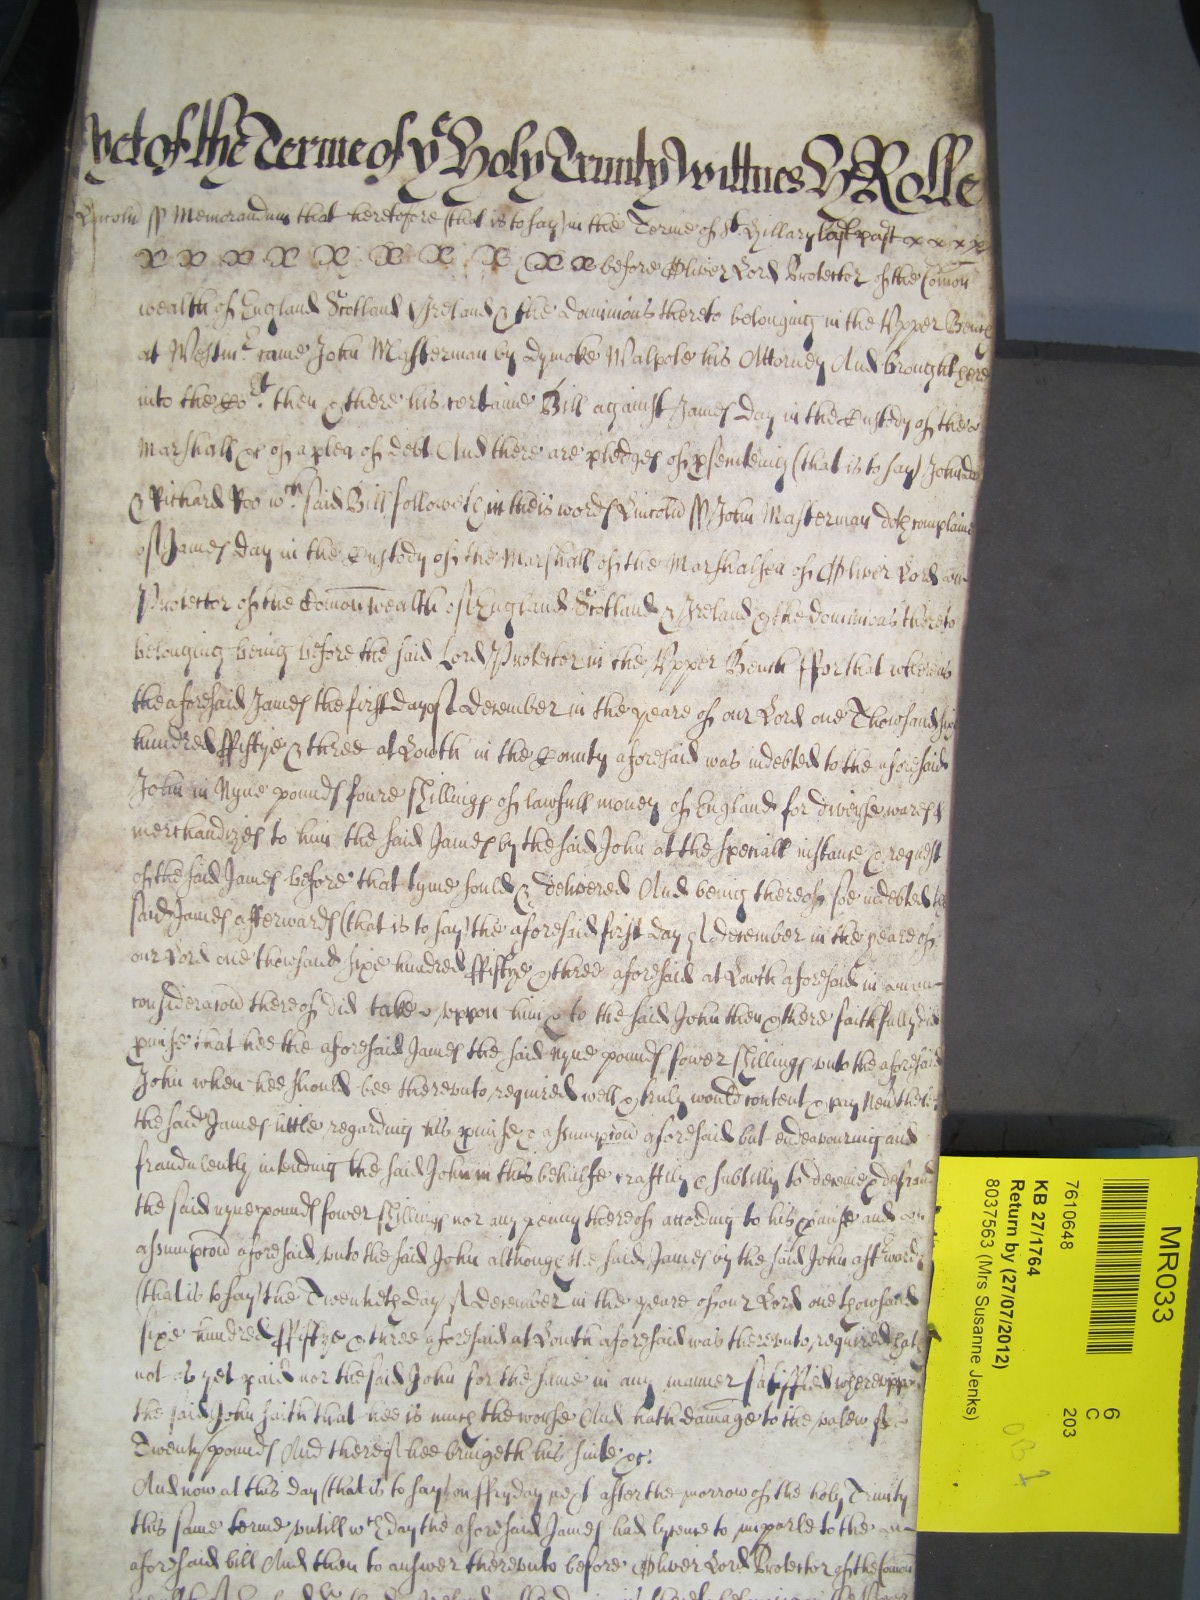 Yet of the Terme of ye Holy Trinity Wittnes H Rolle
Lincoln ss Memorandum that heretofore (that is to say) in the Terme of St Hillary last past x x x x
x x x x x x x x x x before Oliver Lord Protector of the Comon
wealth of England Scotland & Ireland & the Dominions thereto belonging in the Upper Bench
at Westmr came John Masterman by Dymoke Walpole his Attorney And brought here
into the Cort then & there his certaine Bill against James Day in the Custody of the
Marshall &c of a plea of debt And there are pledges of psenteing (that is to say) John doo
& Richard Roo wch said Bill followeth in theis words Lincoln ss John Masterman doth complaine
of James Day in the Custody of the Marshall of the Marshalsea of Oliver Lord
Protector of the Comonwealth of England Scotland & Ireland & the dominions thereto
belonging being before the said Lord Protector in the Upper Bench ffor that whereas
the aforesaid James the first day of December in the yeare of our Lord one Thowsand six
hundred ffiftye & three at Lowth in the County aforesaid was indebted to the aforesaid
John in Nyne pounds foure shillings of lawfull money of England for diverse wares &
merchandizes to him the said James by the said John at the speciall instance & request
of the said James before that tyme sould & delivered And being thereof soe indebted the
said James afterwards (that is to say) the aforesaid first day of December in the yeare of
our Lord one thowsand sixe hundred ffiftye & three aforesaid at Lowth aforesaid in
consideracon thereof did take uppon him & to the said John then & there faithfully did
pmise that hee the aforesaid James the said nyne pounds fower shillings unto the aforesaid
John when hee should bee thereunto required well & truly would content & pay Nevtheles
the said James little regarding his pmise & assumpcon aforesaid but endeavouring and
fraudulently intending the said John in this behalfe craftily & subtilly to deceive & defraud
the said nyne pounds fower shillings nor any penny thereof according to his pmise and
assumpcon aforesaid unto the said John although the said James by the said John aftwards
(that is to say) the Twentieth day of December in the yeare of our Lord one thowsand
sixe hundred ffiftye & three aforesaid at Lowth aforesaid was thereunto required hath
not as yet paid nor the said John for the same in any manner satisffied whereuppon
the said John saith that hee is much the worse And hath damage to the valew of
Twenty pounds And thereof hee bringeth his suite &c.
And now at this day (that is to say) on ffryday next after the morrow of the holy Trinity
this same terme untill wch day the aforesaid James had lycence to imparle to the
aforesaid bill And then to answer thereunto before Oliver Lord Protector of the Comon
MR033
6
C
203
7610648
KB 27/1764
Return by (27/07/2012)
8037563 (Mrs Susanne Jenks)